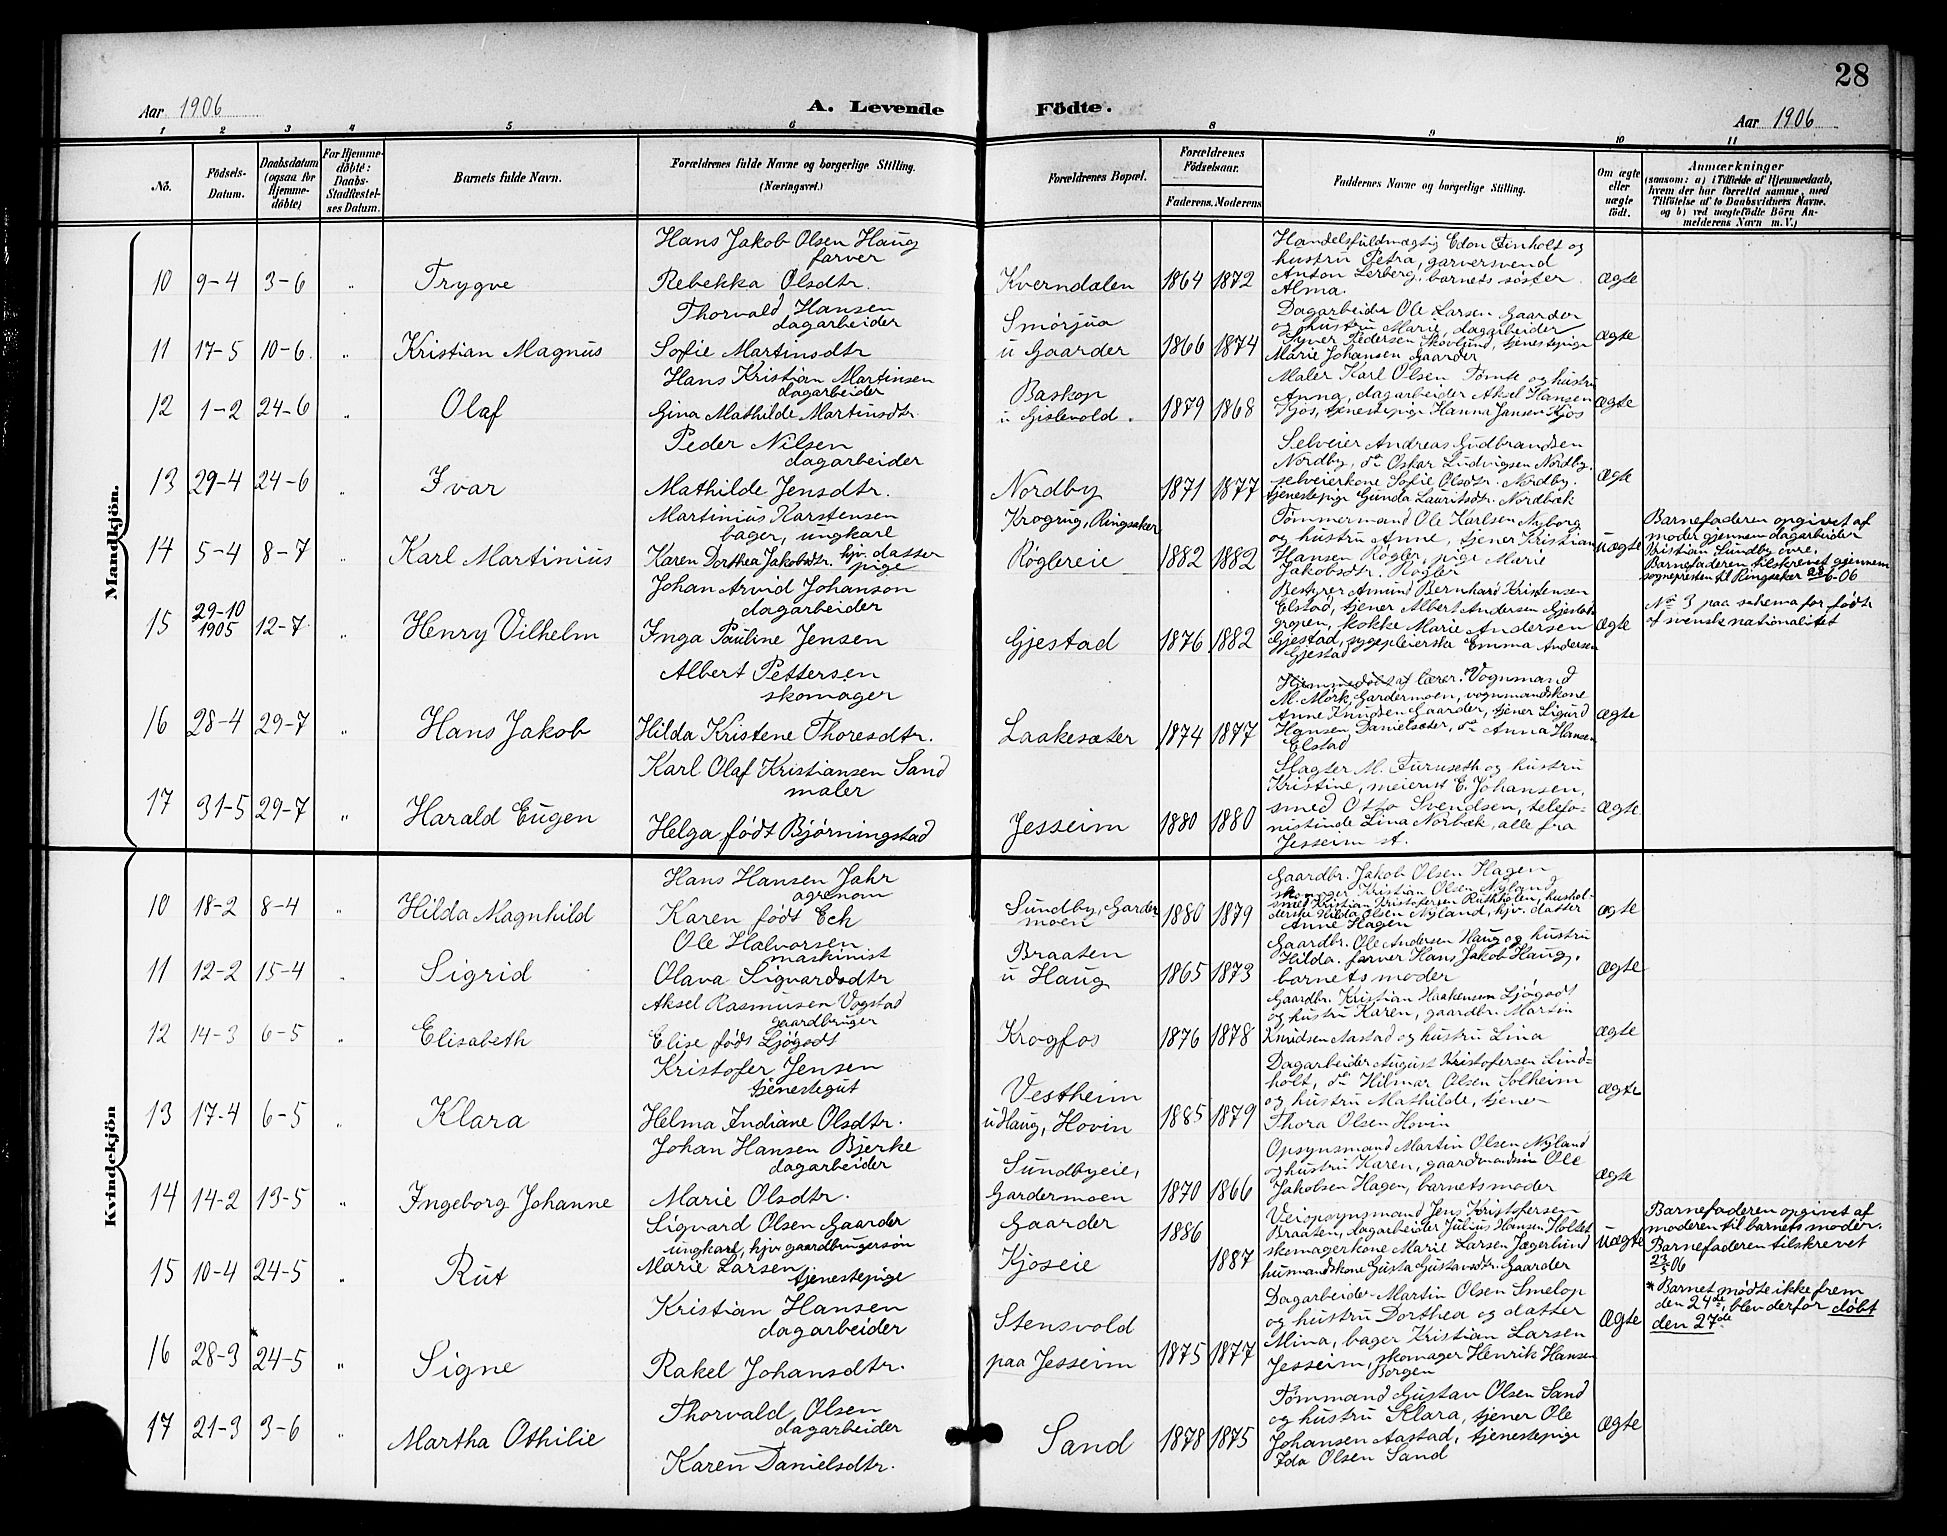 28
Aar 1906
A. Levende Födte.
Aar 1906
1 2 3 4 5 6 8 9 10 11
No.
Födsels-Datum.
Daabsdatum (ogsaa for Hjemme-döbte)
For Hjemme-döbte: Daabs-Stadfæstel-ses Datum.
Barnets fulde Navn.
Forældrenes fulde Navne og borgerlige Stilling. (Næringsvei.)
Forældrenes Bopæl.
Forældrenes Födselsaar.
Faderens. Moderens
Faddernes Navne og borgerlige Stilling.
Om ægte eller uægte födt.
Anmærkninger
(saasom: a) i Tilfælde af Hjemmedaab,
hvem der har forrettet samme, med
Tilföielse af to Daabsvidners Navne.
og b) ved uægtefödte Börn An-
melderens Navn m. V.)
Mandkjön.
10 9-4 3-6 " Trygve
Hans Jakob Olsen Haug
farver
Rebekka Olsdtr.
Kverndalen 1864 1872
Handelsfuldmægtig Edon Finholt og
hustru Petra, garversvend
Anton Lerberg, barnets söster
Alma.
Ægte
11 17-5 10-6 " Kristian Magnus
Thorvald Hansen
dagarbeider
Sofie Martinsdtr
Smörjua
u Gaarder 1866 1874
Dagarbeider Ole Larsen Gaarder
og hustru Marie, dagarbeider
Pedersen Skovlund, tjenestepige
Marie Johansen Gaarder
Ægte
12 1-2 24-6 " Olaf
Hans Kristian Martinsen
dagarbeider
Gina Mathilde Martinsdtr.
Baskop
u Gislevold. 1879 1868
Maler Karl Olsen Tomte og hustru
Anna, dagarbeider Aksel Hansen
Kjos, tjenestepige Hanna Jansen Kjos
Ægte
13 29-4 24-6 " Ivar
Peder Nilsen
dagarbeider
Mathilde Jensdtr.
Nordby 1871 1877
Selveier Andreas Gudbrandsen
Nordby, do Oskar Ludvigsen Nordby.
selveierkone Sofie Olsdtr. Nordby.
tjenestepige Gunda Lauritsdtr. Nordbæk
Ægte
14 5-4 8-7 " Karl Martinius
Martinius Karstensen
bager, ungkarl
Karen Dorthea Jakobsdtr. hjv. datter
pige
Krogrug, Ringsaker
Röglereie 1882 1882
Tømmermand Ole Karlsen Nyborg
og hustru Anne, tjener Kristian
Hansen Rögler, pige Marie
Jakobsdtr. Rögler
Uægte
Barnefaderen opgivet af
moder gjennem dagarbeider
Kristian Sundby övre.
Barnefaderen tilskrevet gjennem
sognepresten til Ringsaker 28/6-06
15 29-10 1905 12-7 " Henry Vilhelm
Johan Arvid Johanson
dagarbeider
Inga Pauline Jensen
Gjestad 1876 1882
Bestyrer Amund Bernhard Kristensen
Elstad, tjener Albert Andersen Gjestad-
grenen, kokke Marie Andersen
Gjestad, sygepleierske Emma Andersen
Gjestad
Ægte
No 3 paa schema for födte
af svenske nationalitet
16 28-4 29-7 " Hans Jakob
Albert Pettersen
skomager
Hilda Kristene Thoresdtr.
Laakesæter 1874 1877
Hjemmedöbt af lærer. Vognmand
M. Mörk, Gardermoen, vognmandskone
Anne Knudsen Gaarder, tjener Sigurd
Hansen Danielsæter, do Anna Hansen
Elstad
Ægte
17 31-5 29-7 " Harald Eugen
Karl Olaf Kristiansen Sand
maler
Helga födt Bjørningstad
Jesseim 1880 1880
Slagter M. Furuseth og hustru
Kristine, meierist E. Johansen,
smed Otto Svendsen, telefo-
nistinde Lina Norbæk, alle fra
Jesseim st.
Ægte
Kvindekjön
10 18-2 8-4 " Hilda Magnhild
Hans Hansen Jahr
agronom
Karen födt Eek
Sundby, Garder-
moen 1880 1879
Gaardbr. Jakob Olsen Hagen
skomager Kristian Olsen Nyland
smed Kristian Kristofersen Rustholen, hushol-
derske Hilda Olsen Nyland, hjv. datter
Anne Hagen
Ægte
11 12-2 15-4 " Sigrid
Ole Halvorsen
maskinist
Olava Sigvardsdtr
Braaten
u Haug 1865 1873
Gaardbr. Ole Andersen Haug og hustru
Hilda. farver Hans Jakob Haug,
barnets moder
Ægte
12 14-3 6-5 " Elisabeth
Aksel Rasmusen Vogstad
gaardbruger
Elise födt Ljøgodt
Krogfos 1876 1878
Gaardbr. Kristian Haakensen Ljøgodt
og hustru Karen, gaardbr. Martin
Knudsen Aastad og hustru Lina
Ægte
13 17-4 6-5 " Klara
Kristofer Jensen
tjenestegut
Helma Indiane Olsdtr.
Vestheim
u Haug, Hovin 1885 1879
Dagarbeider August Kristofersen Lind-
holt, do Hilmar Olsen Solheim
og hustru Mathilde, tjener
Thora Olsen Hovin
Ægte
14 14-2 13-5 " Ingeborg Johanne
Johan Hansen Bjerke
dagarbeider
Marie Olsdtr.
Sundbyeie,
Gardermoen 1870 1866
Opsynsmand Martin Olsen Nyland
og hustru Karen, gaardmandssön Ole
Jakobsen Hagen, barnets moder
Ægte
15 10-4 24-5 " Rut
Sigvard Olsen Gaarder
ungkarl, hjv gaardbrugersön
Marie Larsen
tjenestepige
Gaarder 1886
Kjoseie 1887
Veiopsynsmand Jens Kristofersen
Braaten, dagarbeider Julius Hansen Holtet
skomagerkone Marie Larsen Jægerlund
husmandskone Gusta Gustavsdtr. Gaarder
Uægte
Barnefaderen opgivet af
moderen til barnets moder.
Barnefaderen tilskrevet
23/5 06
16 28-3 24-5* " Signe
Kristian Hansen
dagarbeider
Rakel Johansdtr.
Stensvold
paa Jesseim 1875 1877
Dagarbeider Martin Olsen Smelop
og hustru Dorthea og datter
Mina, bager Kristian Larsen
Jesseim, skomager Henrik Hansen
Borgen
Ægte
* Barnet mödte ikke frem
den 24de, blev derfor döbt
den 27de
17 21-3 3-6 " Martha Othilie
Thorvald Olsen
dagarbeider
Karen Danielsdtr.
Sand 1878 1875
Tømmand Gustav Olsen Sand
og hustru Klara, tjener Ole
Johansen Aastad, tjenestepige
Ida Olsen Sand
Ægte